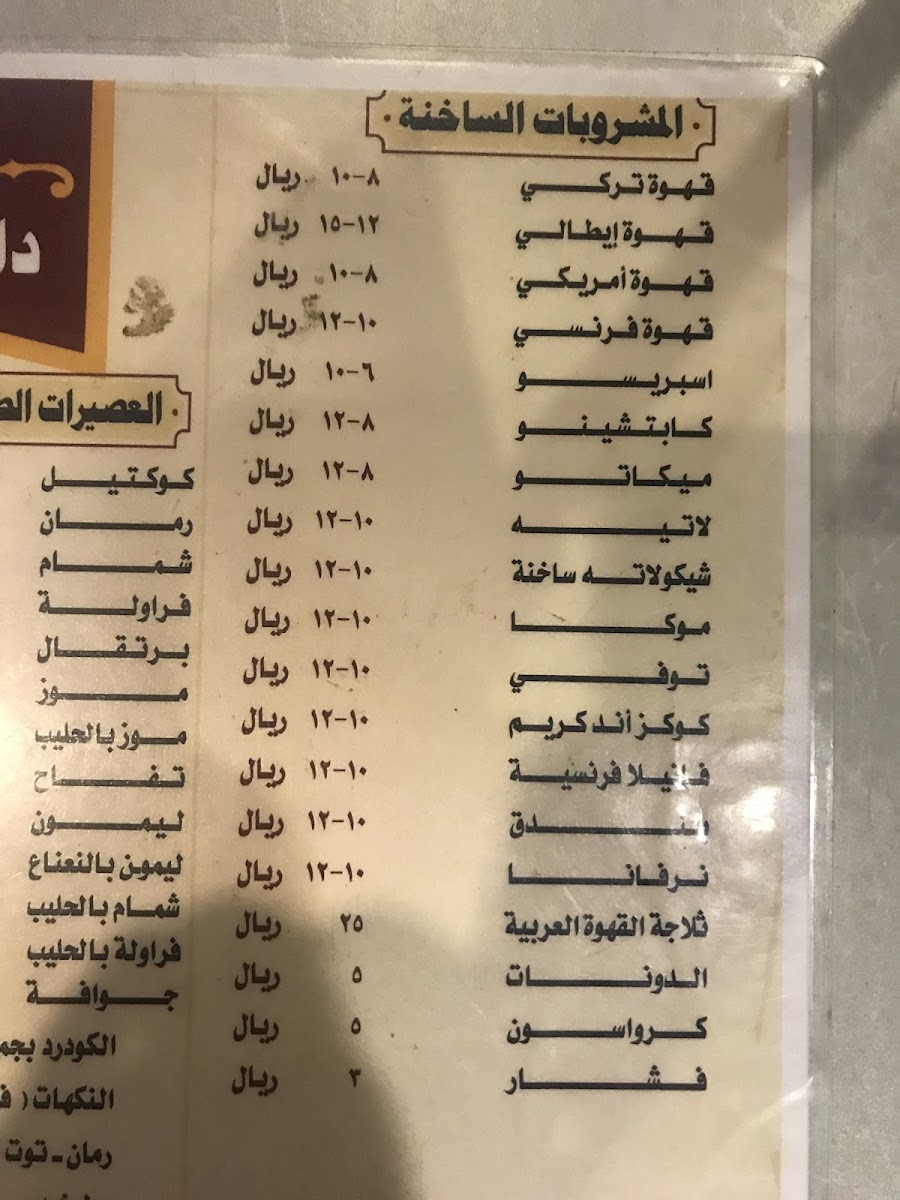 المشروبات الساخنة
قهوة تركي ٨-١٠ ريال
قهوة إيطالي ١٢-١٥ ريال
قهوة أمريكي ٨-١٠ ريال
قهوة فرنسي ١٠-١٢ ريال
اسبريسو ٦-١٠ ريال
كابتشينو ٨-١٢ ريال
ميكاتو ٨-١٢ ريال
لاتيه ١٠-١٢ ريال
شيكولاته ساخنة ١٠-١٢ ريال
موكا ١٠-١٢ ريال
توفي ١٠-١٢ ريال
كوكز أند كريم ١٠-١٢ ريال
فانيلا فرنسية ١٠-١٢ ريال
بندق ١٠-١٢ ريال
نرفانا ١٠-١٢ ريال
ثلاجة القهوة العربية ٢٥ ريال
الدونات ٥ ريال
كرواسون ٥ ريال
فشار ٣ ريال
العصيرات
كوكتيل
رمان
شمام
فراولة
برتقال
موز
موز بالحليب
تفاح
ليمون
ليمون بالنعناع
شمام بالحليب
فراولة بالحليب
جوافة
الكودرد
النكهات (
رمان - توت